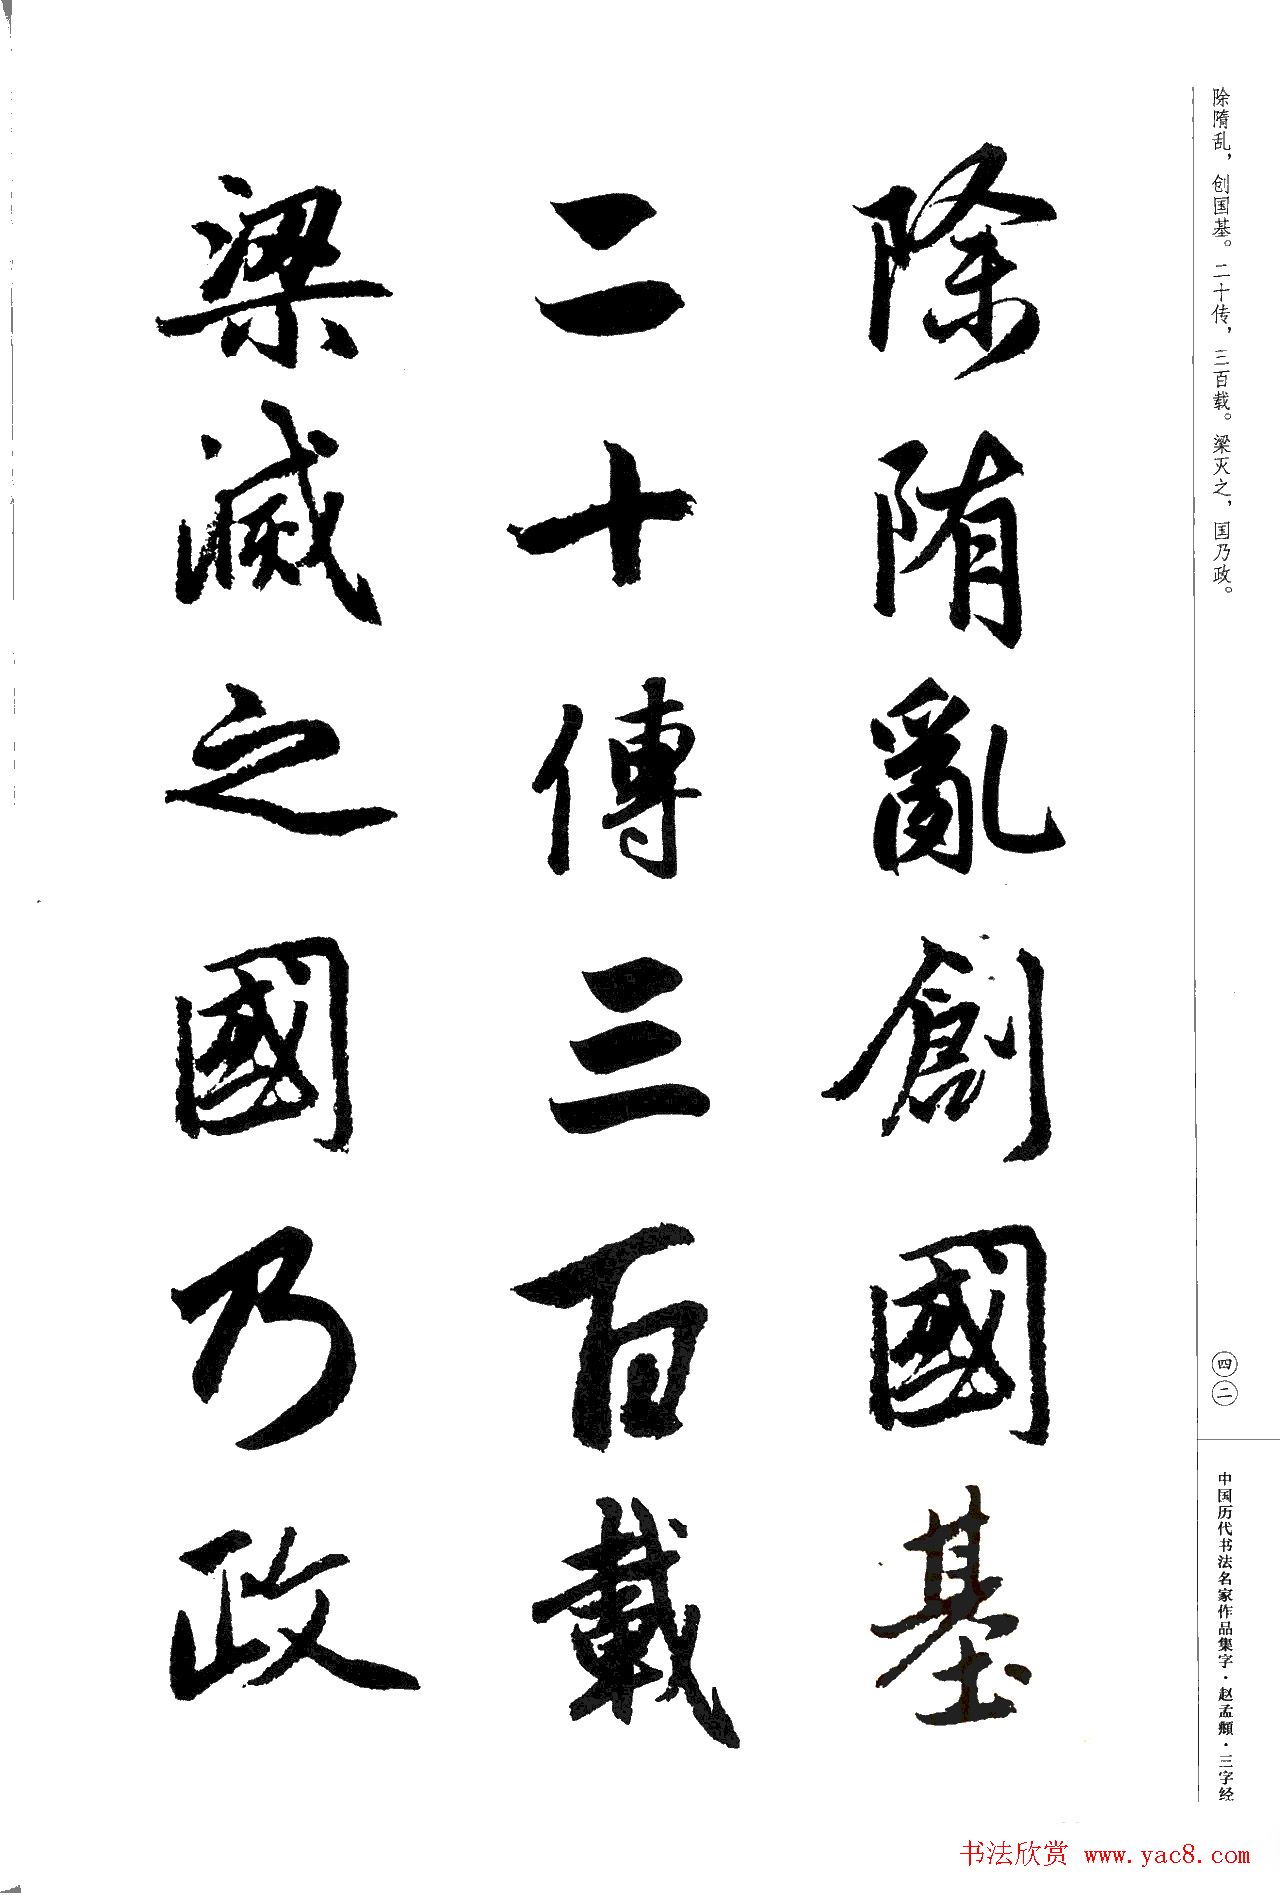 除隋乱，创国基。二十传，三百载。梁灭之，国乃政。
除隋亂創國基
二十傳三百載
梁滅之國乃政
四二
中国历代书法名家作品集字·赵孟頫·三字经
书法欣赏 www.yac8.com